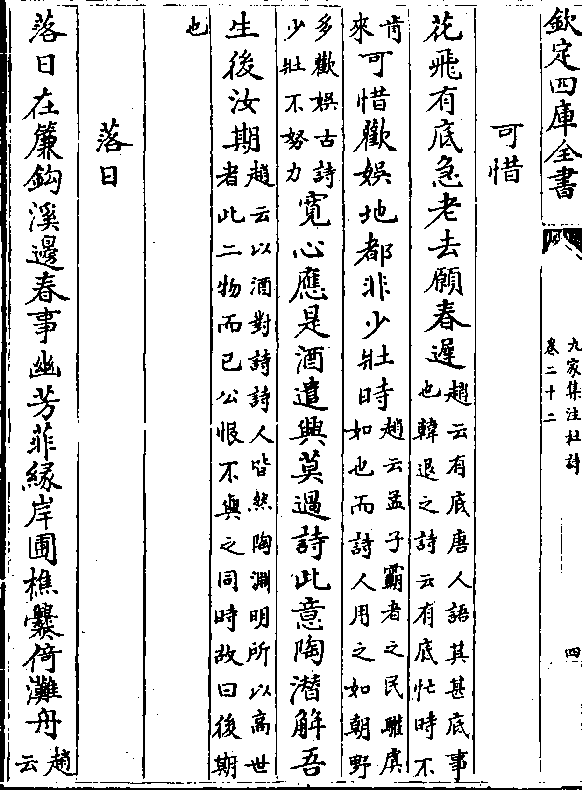 欽定四庫全書
九家集注杜詩
卷二十二
四
可惜
花飛有底急老去願春遲趙云有底唐人語其甚底事也韓退之詩云有底忙時不
肯來可惜歡娛地都非少壯時趙云孟子霸者之民驩虞如也而詩人用之如朝野
多歡娛古詩少壯不努力寛心應是酒遣興莫過詩此意陶潜解吾
生後汝期趙云以酒對詩詩人皆然陶淵明所以高世者此二物而已公恨不與之同時故曰後期
也
落日
落日在簾鈎溪邊春事幽芳菲緣岸圃樵爨倚灘舟趙云